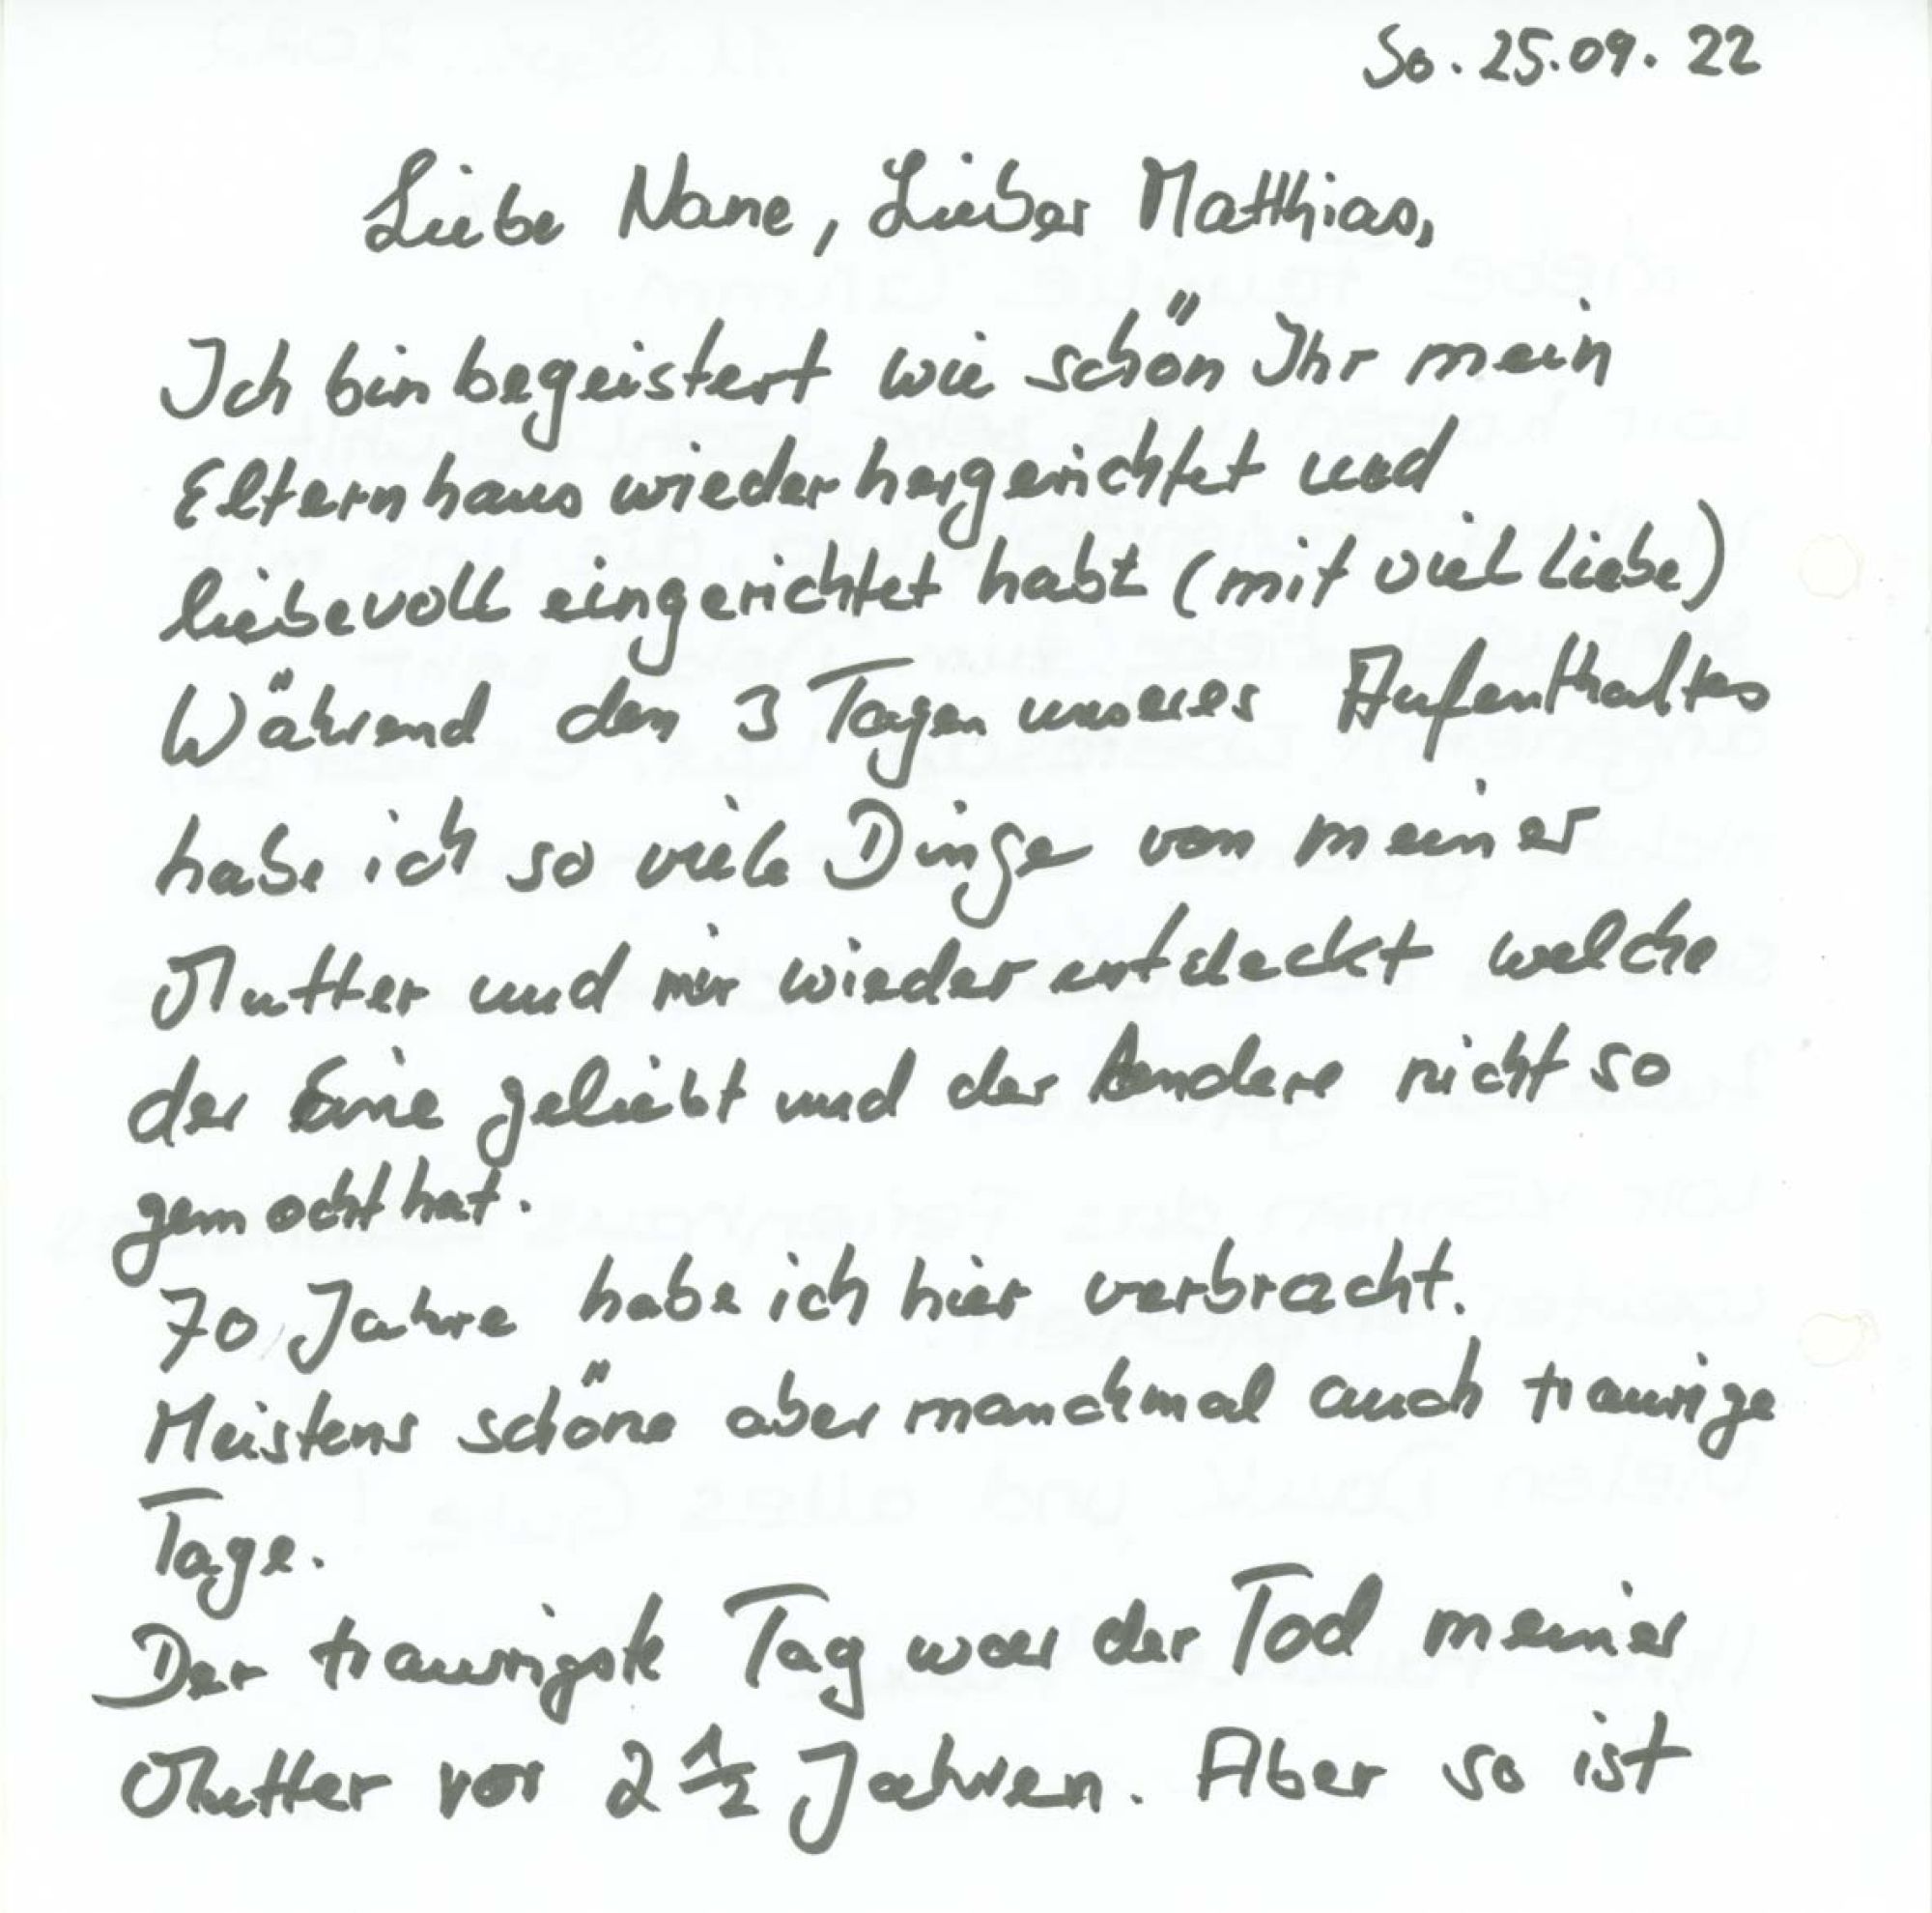 So. 25.09.22
Liebe Nane, Lieber Matthias,
Ich bin begeistert wie schön Ihr mein
Elternhaus wieder hergerichtet und
liebevoll eingerichtet habt (mit viel Liebe)
Während den 3 Tagen unseres Aufenthaltes
habe ich so viele Dinge von meiner
Mutter und mir wieder entdeckt welche
der Eine geliebt und der Andere nicht so
gemocht hat.
70 Jahre habe ich hier verbracht.
Meistens schöne aber manchmal auch traurige
Tage.
Der traurigste Tag war der Tod meiner
Mutter vor 2 1/2 Jahren. Aber so ist